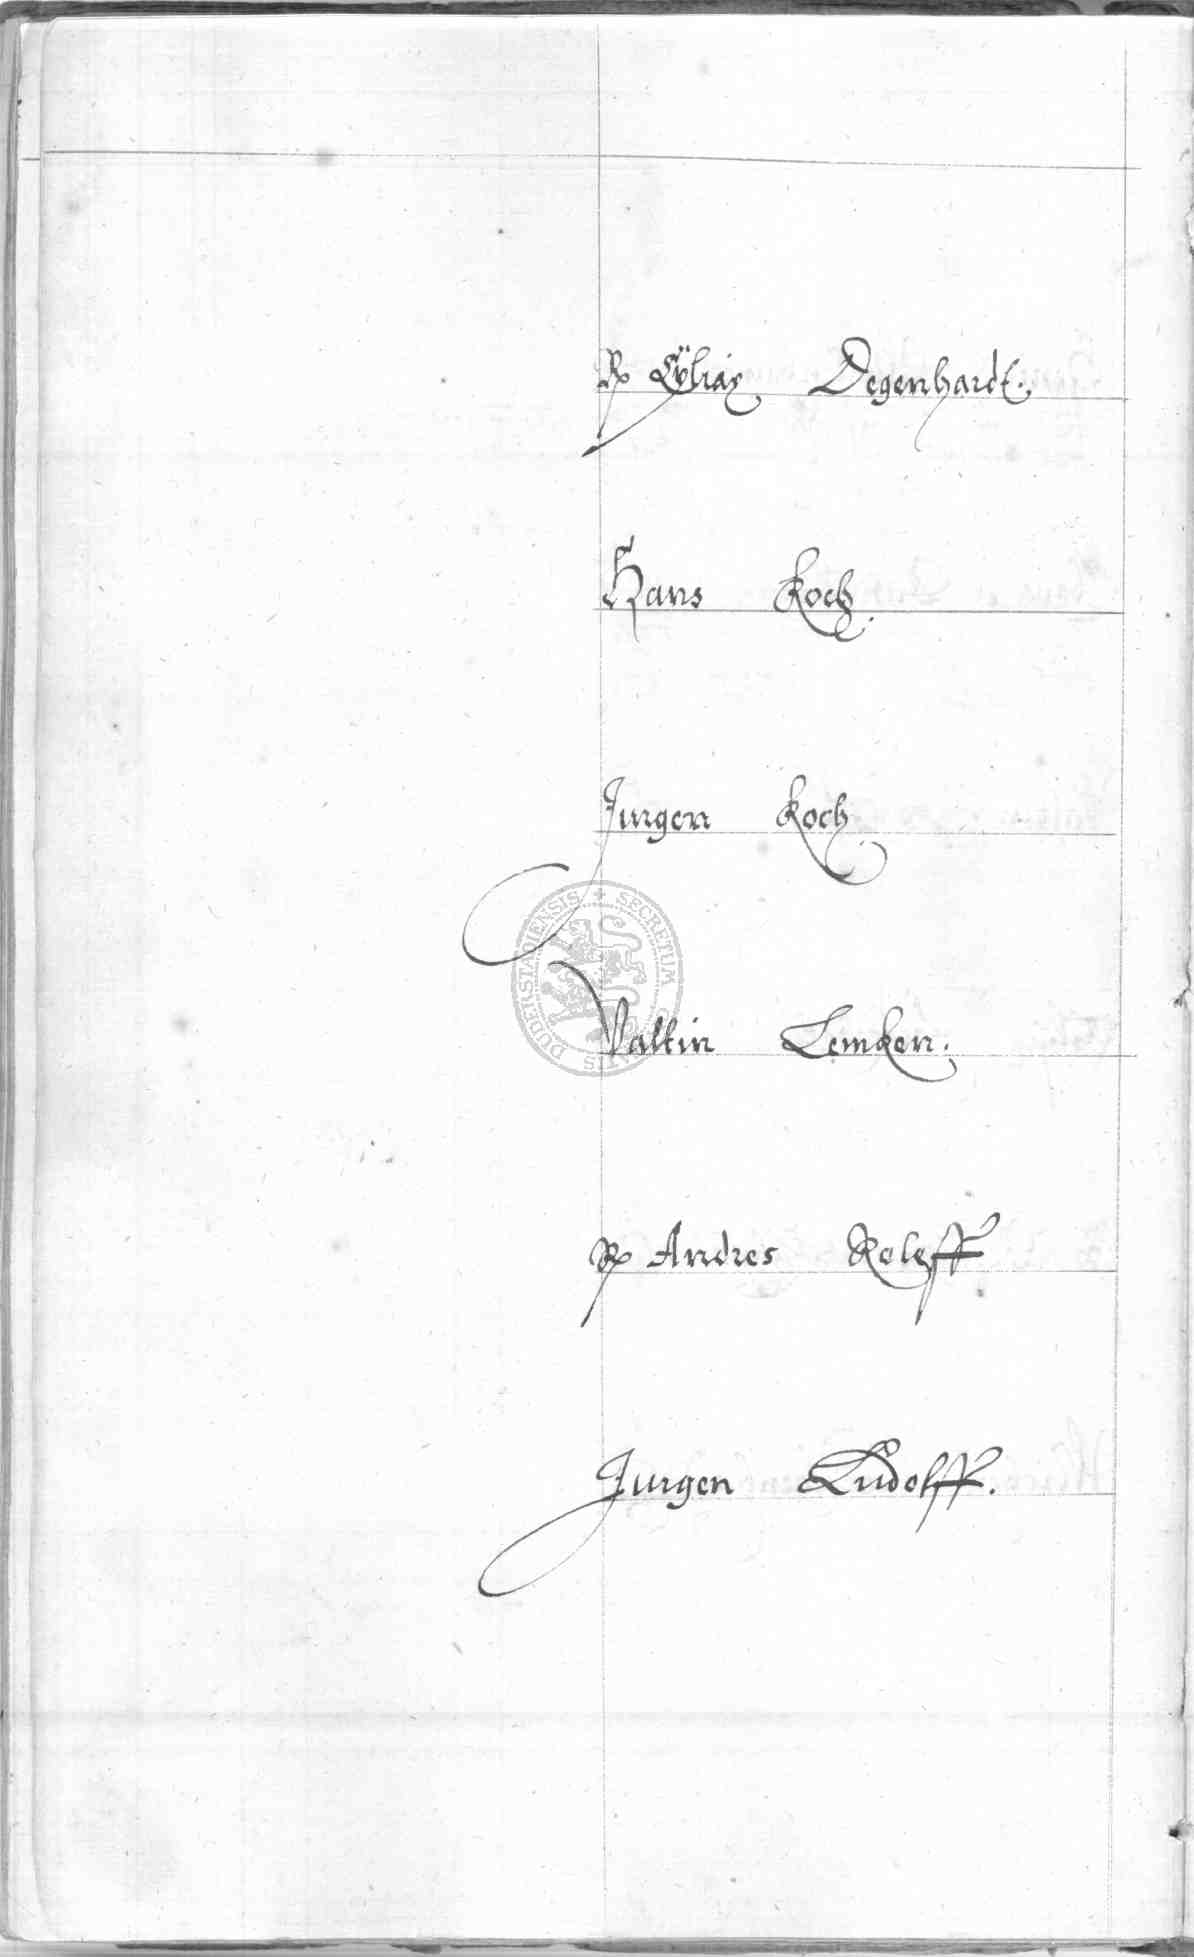 R Cÿliax Degenhardt.
Hans Koch.
Jurgen Koch
Valtin Lemken.
R Andres Roleff
Jurgen Ludolff.
SECRETUM DUDERSTADIENSIS